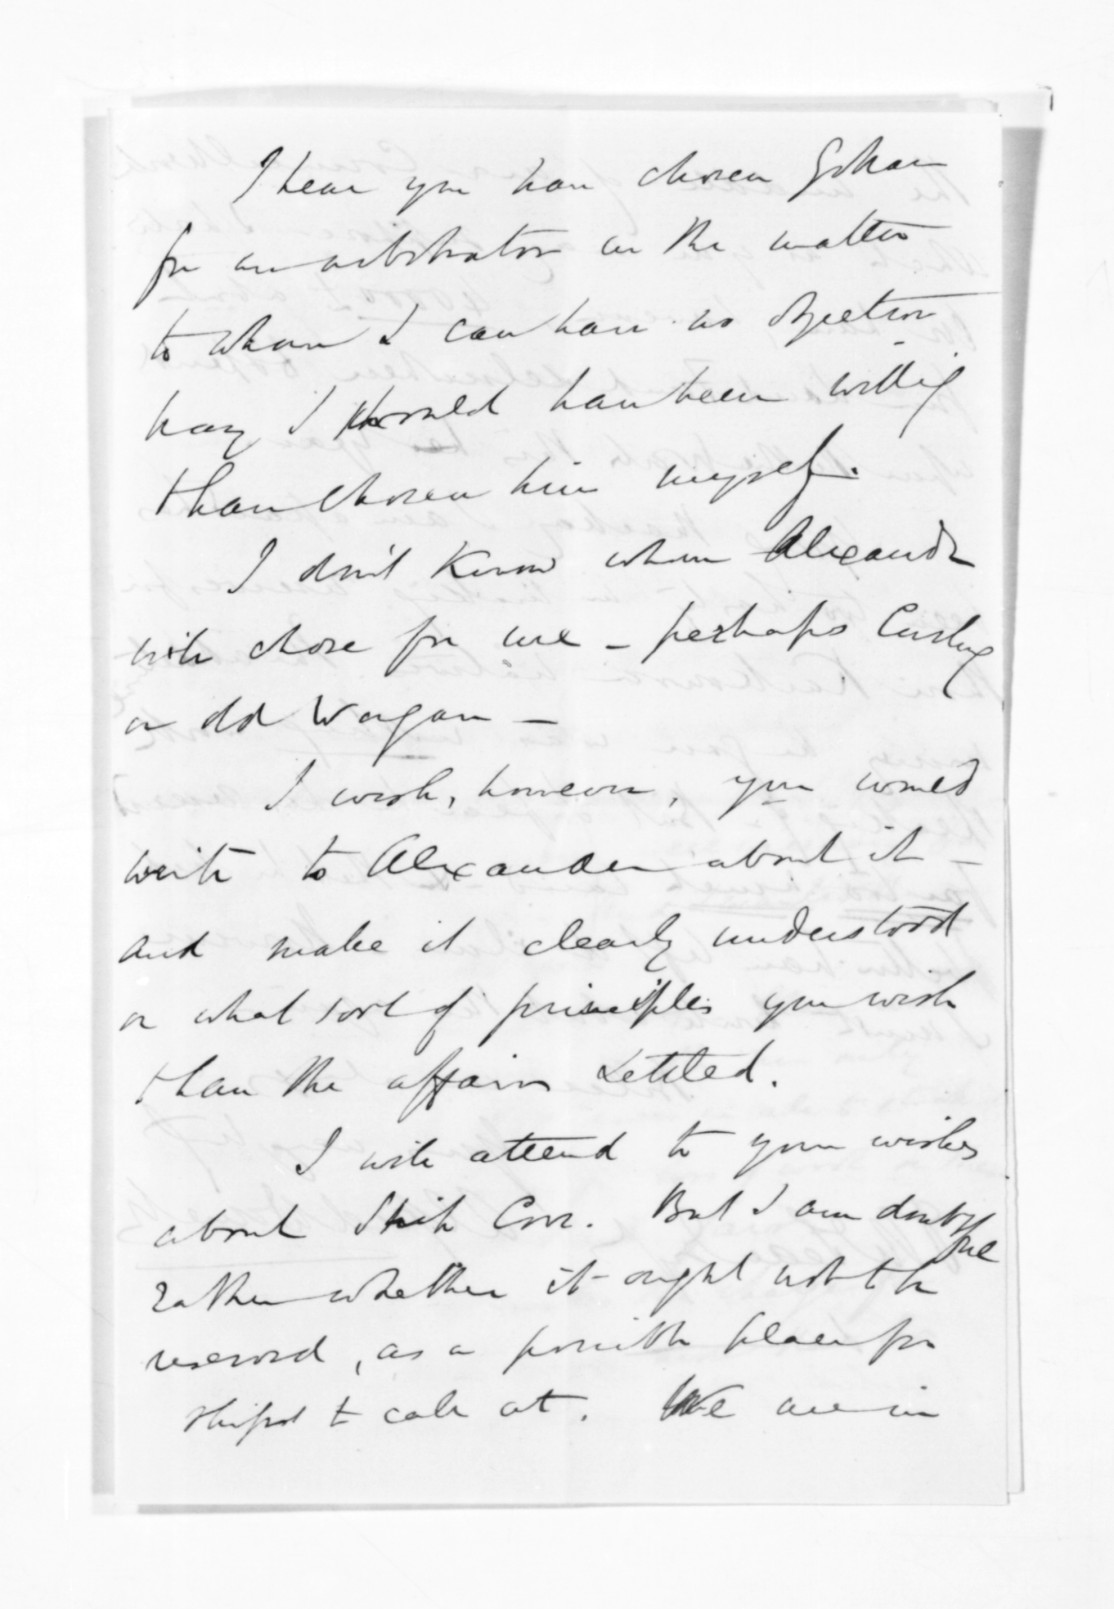 I hear you have chosen
for an arbitrator in the matter
to whom I can have no objection
nay I should have been willing
t have chosen him myself.
I don't know whom Alexander
will chose for me - perhaps Curling
or old Worgan -
I wish, however, you would
write to Alexander about it -
and make it clearly understood
on what sort of principles you wish
t have the affairs settled.
I will attend to your wishes
about. But I am doubtful
rather whether it ought not t be
reserved, as a possible place for
ships t call at. We are in